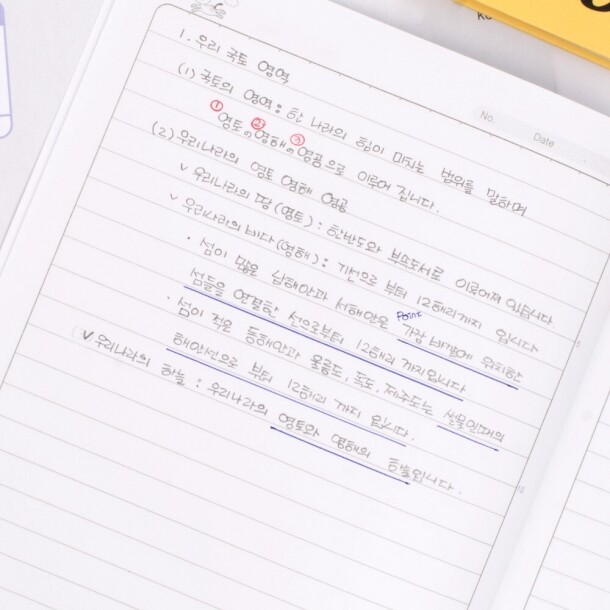 No.
Date
1. 우리 국토 영역
(1) 국토의 영역 : 한 나라의 힘이 미치는 범위를 말하며
① ② ③
영토 영해 영공으로 이루어 집니다.
(2) 우리나라의 영토 영해 영공
v 우리나라의 땅(영토) : 한반도와 부속도서로 이루어져 있습니다.
v 우리나라의 바다(영해) : 기선으로 부터 12해리까지 입니다
· 섬이 많은 남해안과 서해안은 가장 바깥에 위치한
Point
섬들을 연결한 선으로부터 12해리 까지입니다
· 섬이 적은 동해안과 울릉도, 독도, 제주도는 썰물일때의
해안선으로 부터 12해리 까지 입니다.
v 우리나라의 하늘 : 우리나라의 영토와 영해의 하늘입니다.
5
10